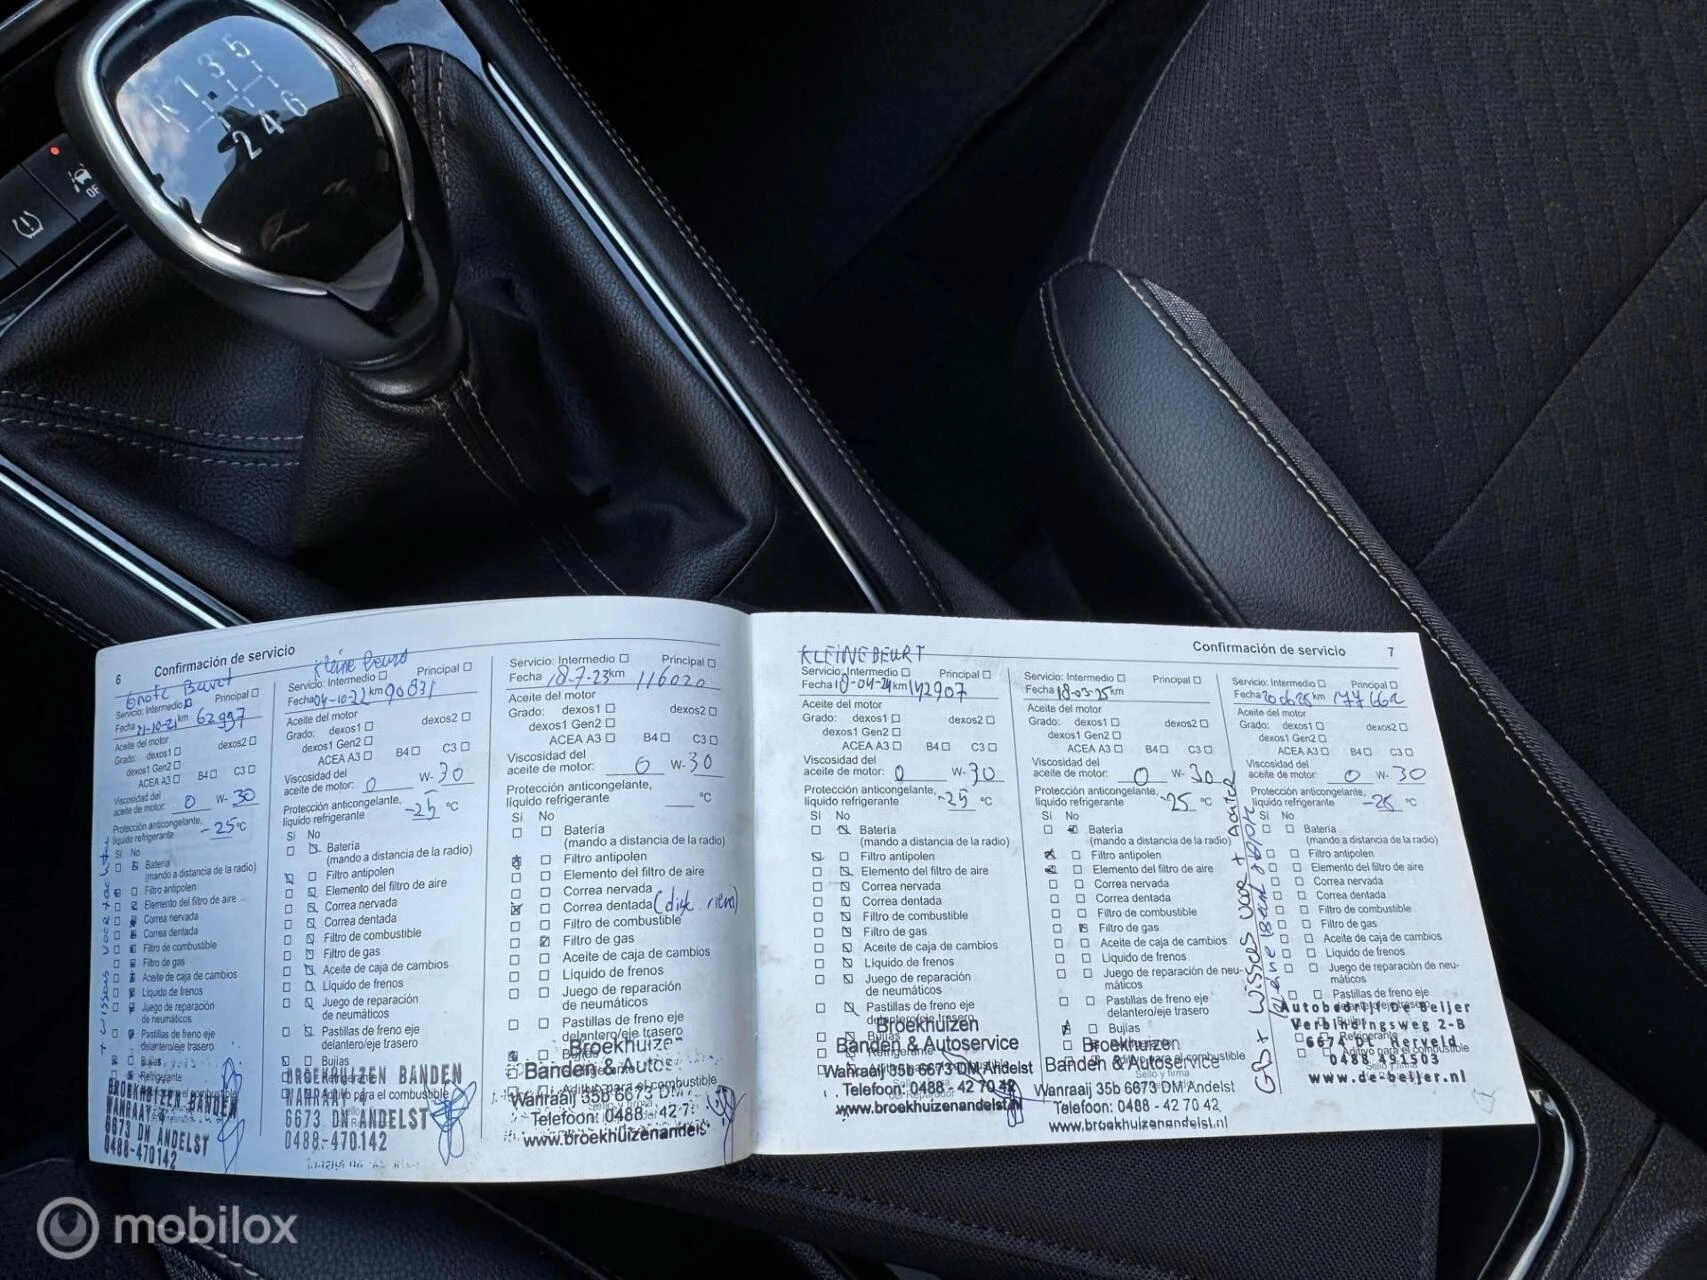 R 1 3 5
2 4 6
OFF
6 Confirmación de servicio
Grote Beurt
Servicio: Intermedio Principal
Fecha 21-10-21 km 62997
Aceite del motor
Grado: dexos1 dexos2
dexos1 Gen2
ACEA A3 B4 C3
Viscosidad del
aceite de motor: 0 W- 30
Protección anticongelante,
líquido refrigerante -25 °C
Sí No
Batería
(mando a distancia de la radio)
Filtro antipolen
Elemento del filtro de aire
Correa nervada
Correa dentada
Filtro de combustible
Filtro de gas
Aceite de caja de cambios
Líquido de frenos
Juego de reparación
de neumáticos
Pastillas de freno eje
delantero/eje trasero
Bujías
Refrigerante
BROEKHUIZEN BANDEN
WANRAAY 4
6673 DN ANDELST
0488-470142
Kleine Beurt
Servicio: Intermedio Principal
Fecha 04-10-22 km 90831
Aceite del motor
Grado: dexos1 dexos2
dexos1 Gen2
ACEA A3 B4 C3
Viscosidad del
aceite de motor: 0 W- 30
Protección anticongelante,
líquido refrigerante -25 °C
Sí No
Batería
(mando a distancia de la radio)
Filtro antipolen
Elemento del filtro de aire
Correa nervada
Correa dentada
Filtro de combustible
Filtro de gas
Aceite de caja de cambios
Líquido de frenos
Juego de reparación
de neumáticos
Pastillas de freno eje
delantero/eje trasero
Bujías
Refrigerante
Aditivo para el combustible
BROEKHUIZEN BANDEN
WANRAAY 4
6673 DN ANDELST
0488-470142
Servicio: Intermedio Principal
Fecha 18-7-23 km 116020
Aceite del motor
Grado: dexos1 dexos2
dexos1 Gen2
ACEA A3 B4 C3
Viscosidad del
aceite de motor: 0 W- 30
Protección anticongelante,
líquido refrigerante °C
Sí No
Batería
(mando a distancia de la radio)
Filtro antipolen
Elemento del filtro de aire
Correa nervada
Correa dentada (dist. riem)
Filtro de combustible
Filtro de gas
Aceite de caja de cambios
Líquido de frenos
Juego de reparación
de neumáticos
Pastillas de freno eje
delantero/eje trasero
Bujías
Aditivo para el combustible
Broekhuizen
Banden & Autos
Wanraaij 35b 6673 DM
Telefoon: 0488 - 42 7
www.broekhuizenandels
Confirmación de servicio 7
KLEINE BEURT
Servicio: Intermedio Principal
Fecha 18-04-24 km 142907
Aceite del motor
Grado: dexos1 dexos2
dexos1 Gen2
ACEA A3 B4 C3
Viscosidad del
aceite de motor: 0 W- 30
Protección anticongelante,
líquido refrigerante -25 °C
Sí No
Batería
(mando a distancia de la radio)
Filtro antipolen
Elemento del filtro de aire
Correa nervada
Correa dentada
Filtro de combustible
Filtro de gas
Aceite de caja de cambios
Líquido de frenos
Juego de reparación
de neumáticos
Pastillas de freno eje
delantero/eje trasero
Bujías
Refrigerante
Broekhuizen
Banden & Autoservice
Wanraaij 35b 6673 DM Andelst
Telefoon: 0488 - 42 70 42
www.broekhuizenandelst.nl
Servicio: Intermedio Principal
Fecha 18-03-25 km
Aceite del motor
Grado: dexos1 dexos2
dexos1 Gen2
ACEA A3 B4 C3
Viscosidad del
aceite de motor: 0 W- 30
Protección anticongelante,
líquido refrigerante -25 °C
Sí No
Batería
(mando a distancia de la radio)
Filtro antipolen
Elemento del filtro de aire
Correa nervada
Correa dentada
Filtro de combustible
Filtro de gas
Aceite de caja de cambios
Líquido de frenos
Juego de reparación de neu-
máticos
Pastillas de freno eje
delantero/eje trasero
Bujías
Aditivo para el combustible
Sello y firma
Broekhuizen
Banden & Autoservice
Wanraaij 35b 6673 DM Andelst
Telefoon: 0488 - 42 70 42
www.broekhuizenandelst.nl
Servicio: Intermedio Principal
Fecha km
Aceite del motor
Grado: dexos1 dexos2
dexos1 Gen2
ACEA A3 B4 C3
Viscosidad del
aceite de motor: 0 W- 30
Protección anticongelante,
líquido refrigerante °C
Sí No
Batería
(mando a distancia de la radio)
Filtro antipolen
Elemento del filtro de aire
Correa nervada
Correa dentada
Filtro de combustible
Filtro de gas
Aceite de caja de cambios
Líquido de frenos
Juego de reparación de neu-
máticos
Pastillas de freno eje
delantero/eje trasero
Bujías
Refrigerante
Aditivo para el combustible
Sello y firma
Autobedrijf De Beijer
Verbindingsweg 2-B
6674 DC Herveld
0488 491503
www.de-beijer.nl
mobilox